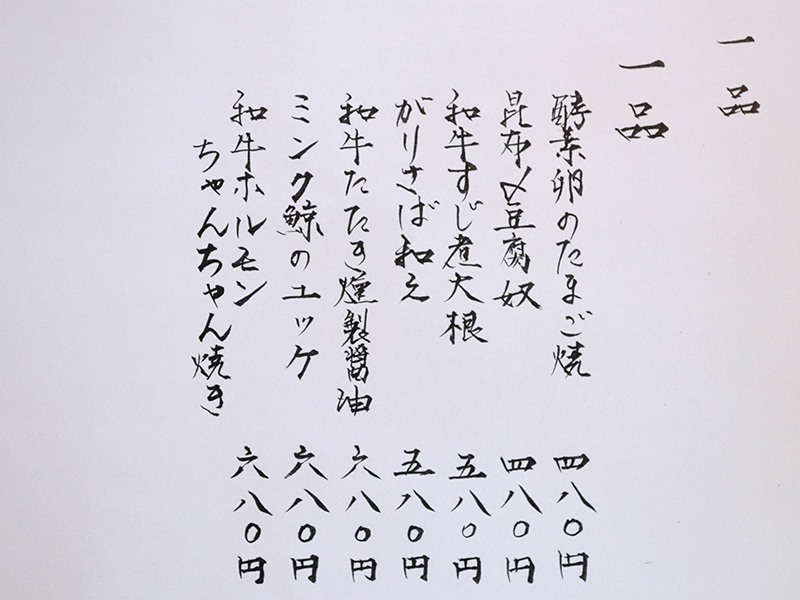 一品
一品
酵素卵のたまご焼 四八〇円
昆布〆豆腐奴 四八〇円
和牛すじ煮大根 五八〇円
がりさば和え 五八〇円
和牛たたき燻製醤油 六八〇円
ミンク鯨のユッケ 六八〇円
和牛ホルモン
ちゃんちゃん焼き 六八〇円